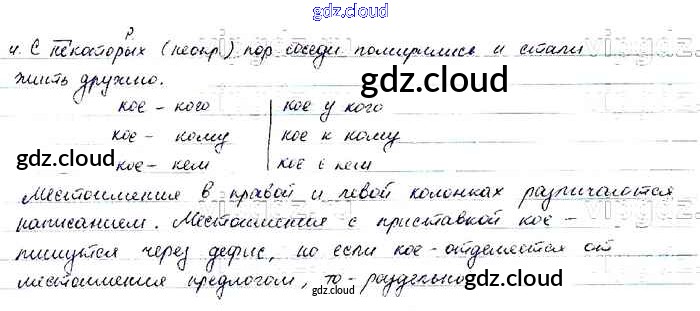 gdz.cloud
Р
4. С некоторых (неопр.) пор соседи помирились и стали
жить дружно.
gdz.cloud
кое - кого | кое у кого
кое - кому | кое к кому
gdz.cloud
кое - кем | кое с кем
gdz.cloud
Местоимения в правой и левой колонках различаются
написанием. Местоимения с приставкой кое -
пишутся через дефис, но если кое - отделяется от
местоимения предлогом, то - раздельно.
gdz.cloud
gdz.cloud